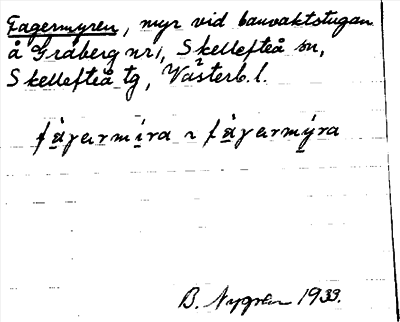 Fagermyren, myr vid banvaktstugan
å Gråberg nr 1, Skellefteå sn,
Skellefteå tg, Västerb. l.
B. Nygren 1939.